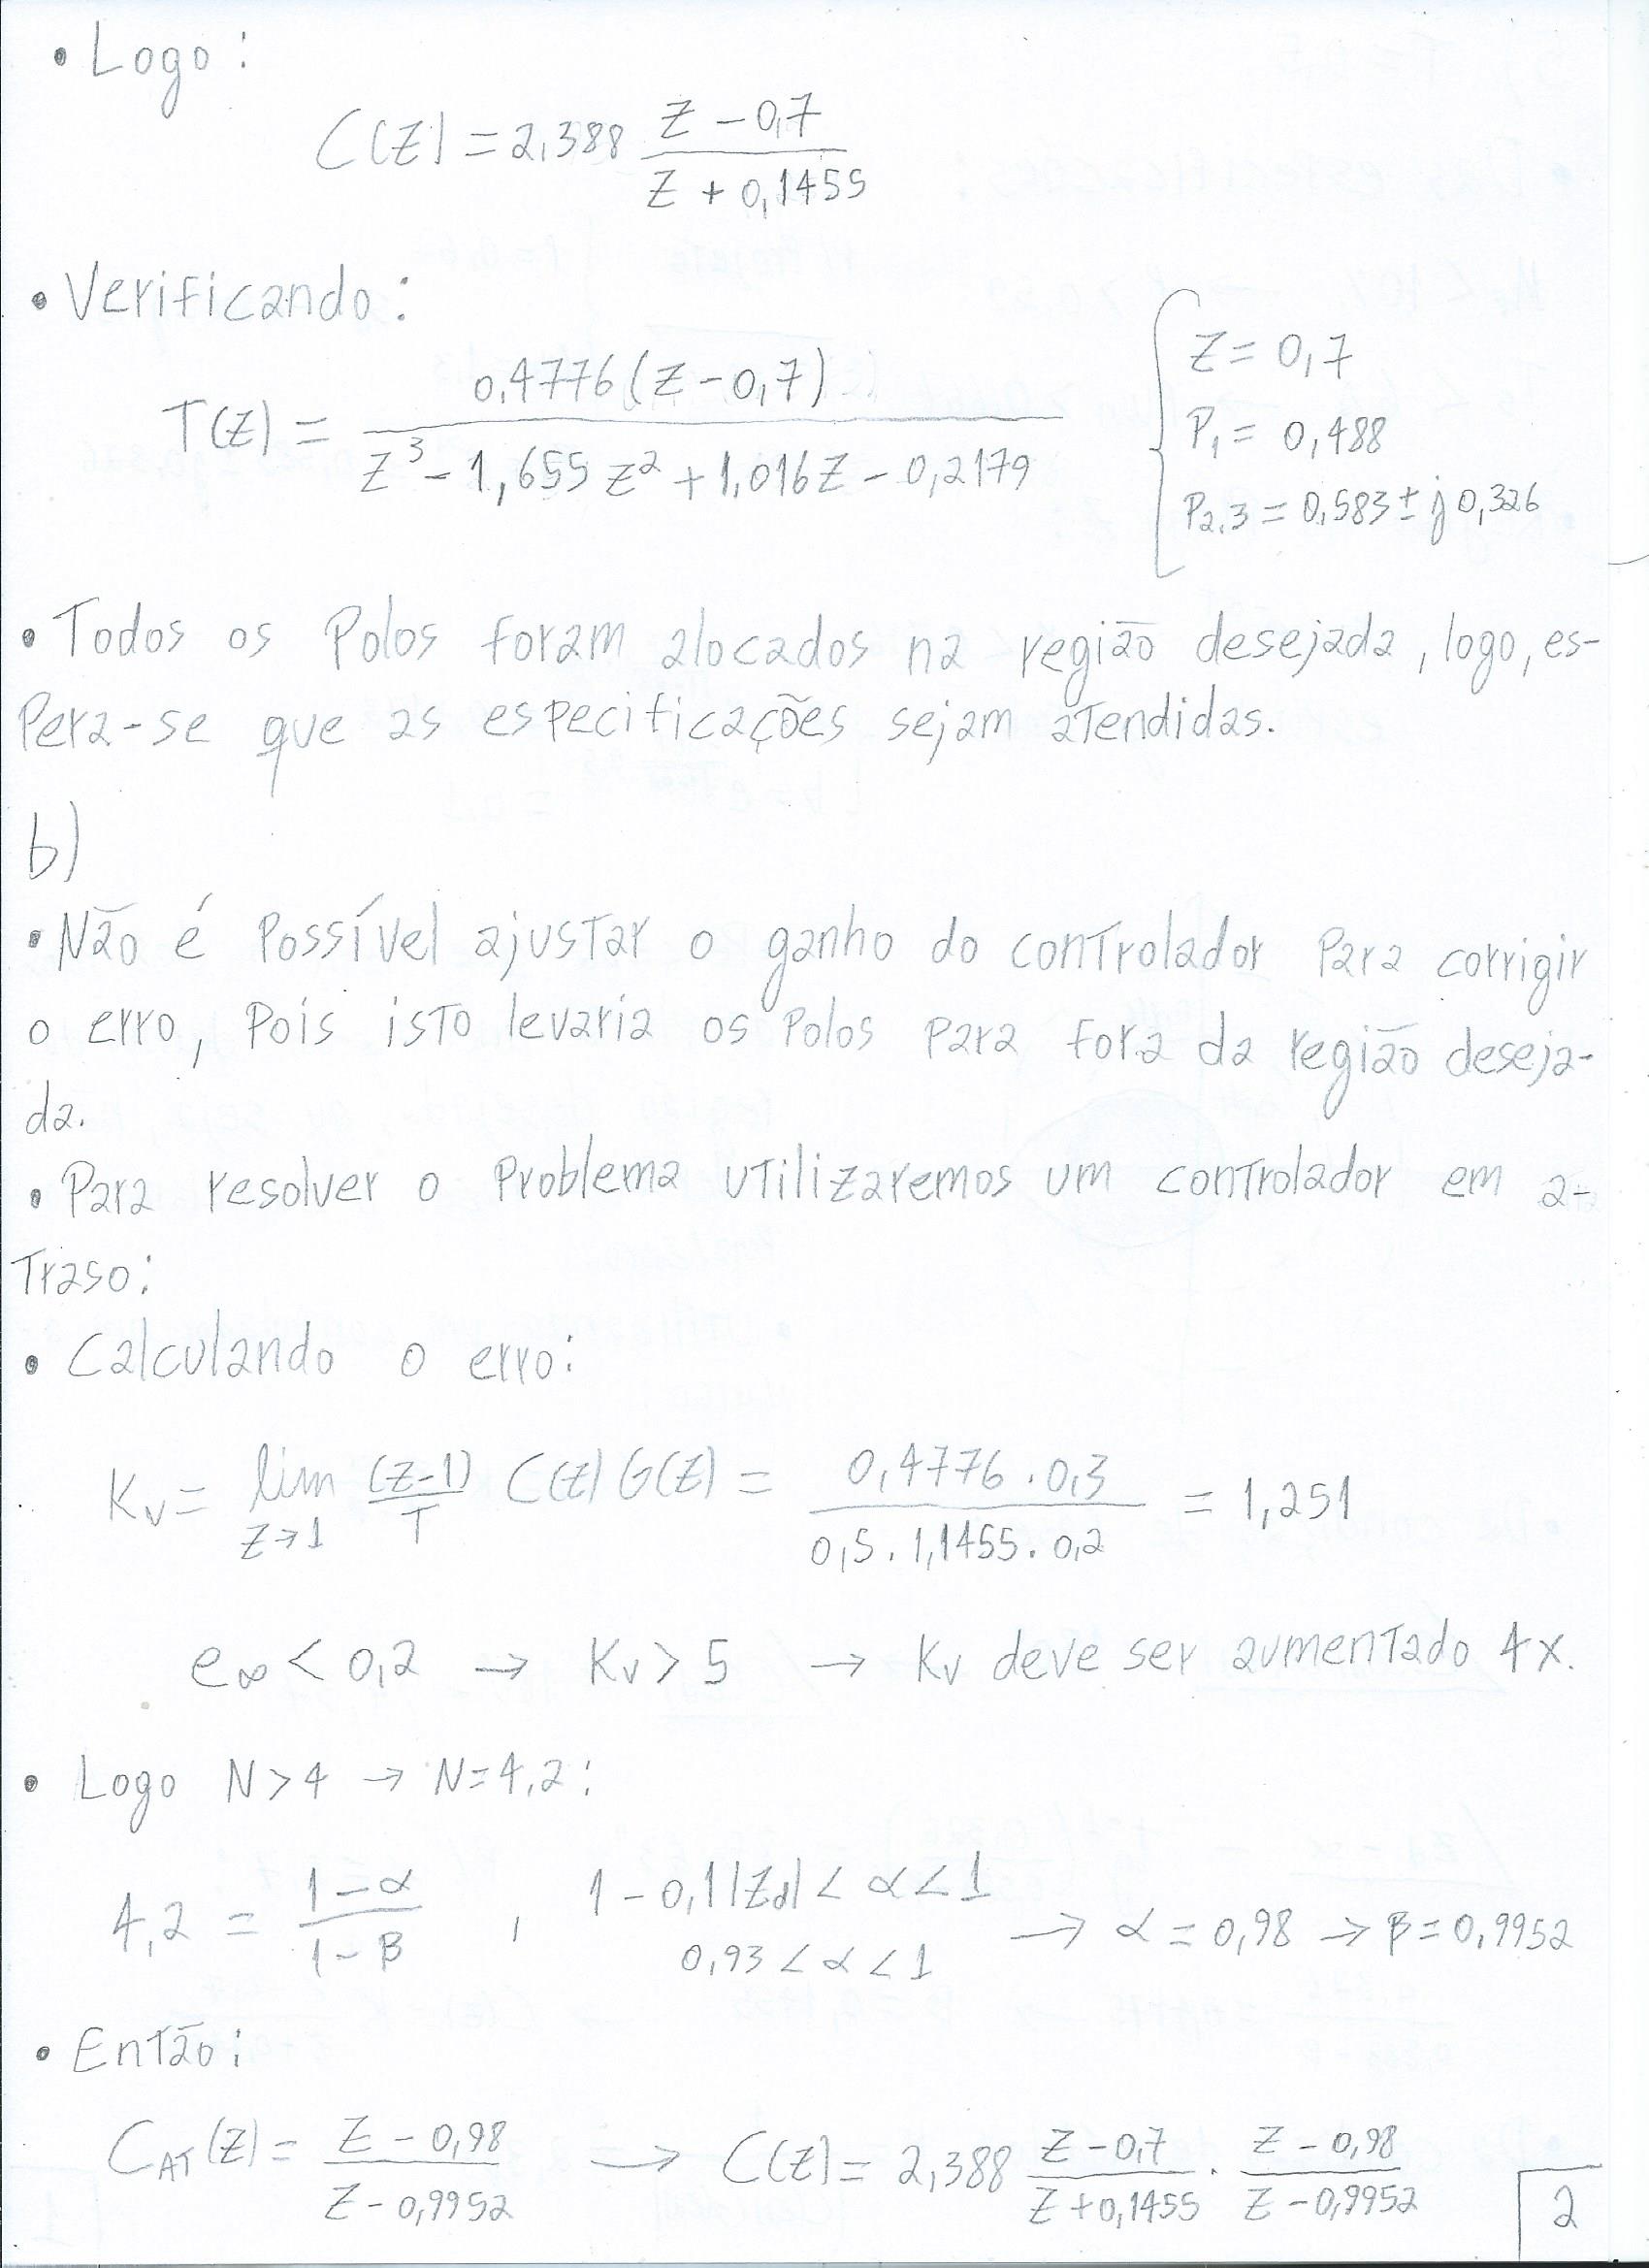 • Logo:
C(z) = 2,388 (z - 0,7)/(z + 0,1455)
• Verificando:
T(z) = 0,4776(z - 0,7)/(z³ - 1,655z² + 1,016z - 0,2179) { z = 0,7
P₁ = 0,488
P₂,₃ = 0,583 ± j0,326
• Todos os Polos foram alocados na região desejada, logo, es-
pera-se que as especificações sejam atendidas.
b)
• Não é possível ajustar o ganho do controlador para corrigir
o erro, pois isto levaria os polos para fora da região deseja-
da.
• Para resolver o problema utilizaremos um controlador em a-
traso:
• Calculando o erro:
Kv = lim z→1 (z-1)/T C(z) G(z) = (0,4776 . 0,3)/(0,5 . 1,1455 . 0,2) = 1,251
e∞ < 0,2 → Kv > 5 → Kv deve ser aumentado 4x.
• Logo N > 4 → N = 4,2:
4,2 = (1 - α)/(1 - β) , 1 - 0,1|zd| < α < 1
0,93 < α < 1 → α = 0,98 → β = 0,9952
• Então:
C_AT(z) = (z - 0,98)/(z - 0,9952) → C(z) = 2,388 (z - 0,7)/(z + 0,1455) . (z - 0,98)/(z - 0,9952)
2